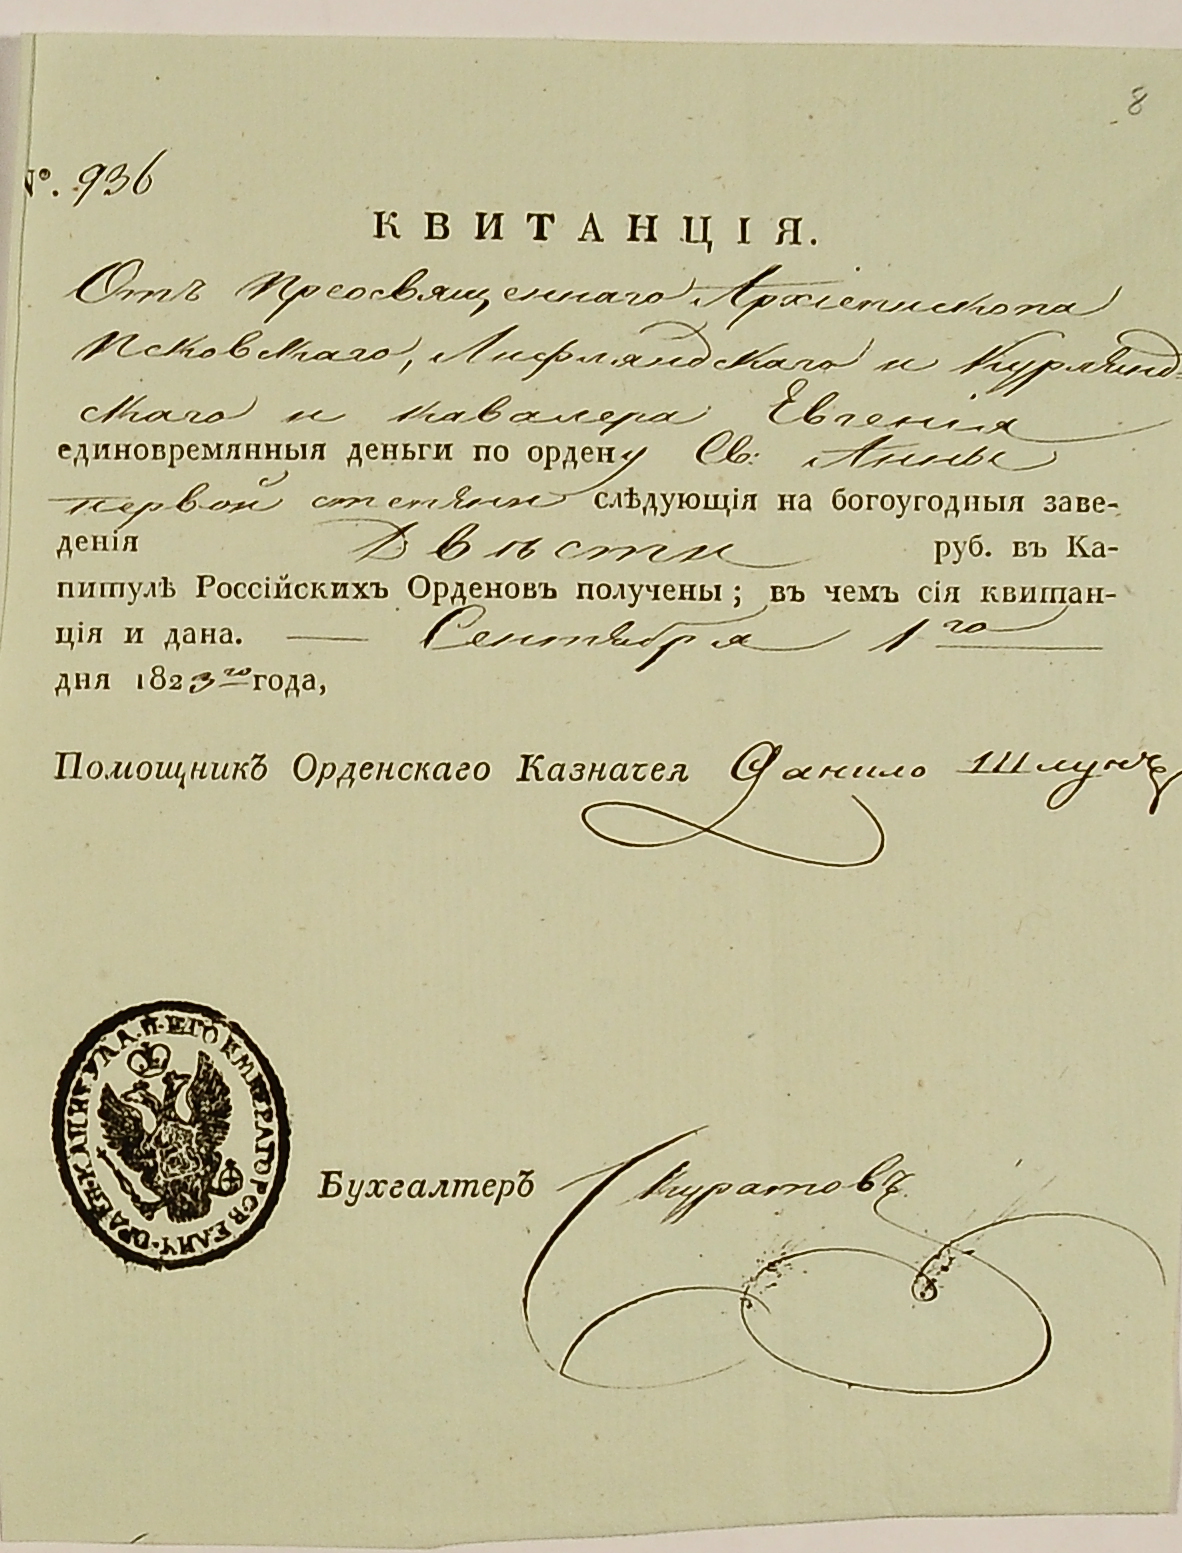 8
№. 936
КВИТАНЦІЯ.
Отъ Преосвященнаго Архіепископа
Псковскаго, Лифляндскаго и Курлянд-
скаго и кавалера Евгенія
единовремянныя деньги по ордену Св: Анны
первой степени слѣдующія на богоугодныя заве-
денія Двѣсти руб. въ Ка-
питулѣ Россійскихъ Орденовъ получены; въ чемъ сія квитан-
ція и дана. — Сентября 1го
дня 1823го года,
Помощникъ Орденскаго Казначея Данило
КАПИТУЛА. П. ЕГО ИМПЕРАТОРС ВЕЛИЧ.
Бухгалтеръ Скуратовъ